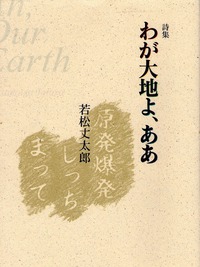 h,
Our
Earth
詩集
わが大地よ、ああ
若松丈太郎
原発爆発
しっち
まって